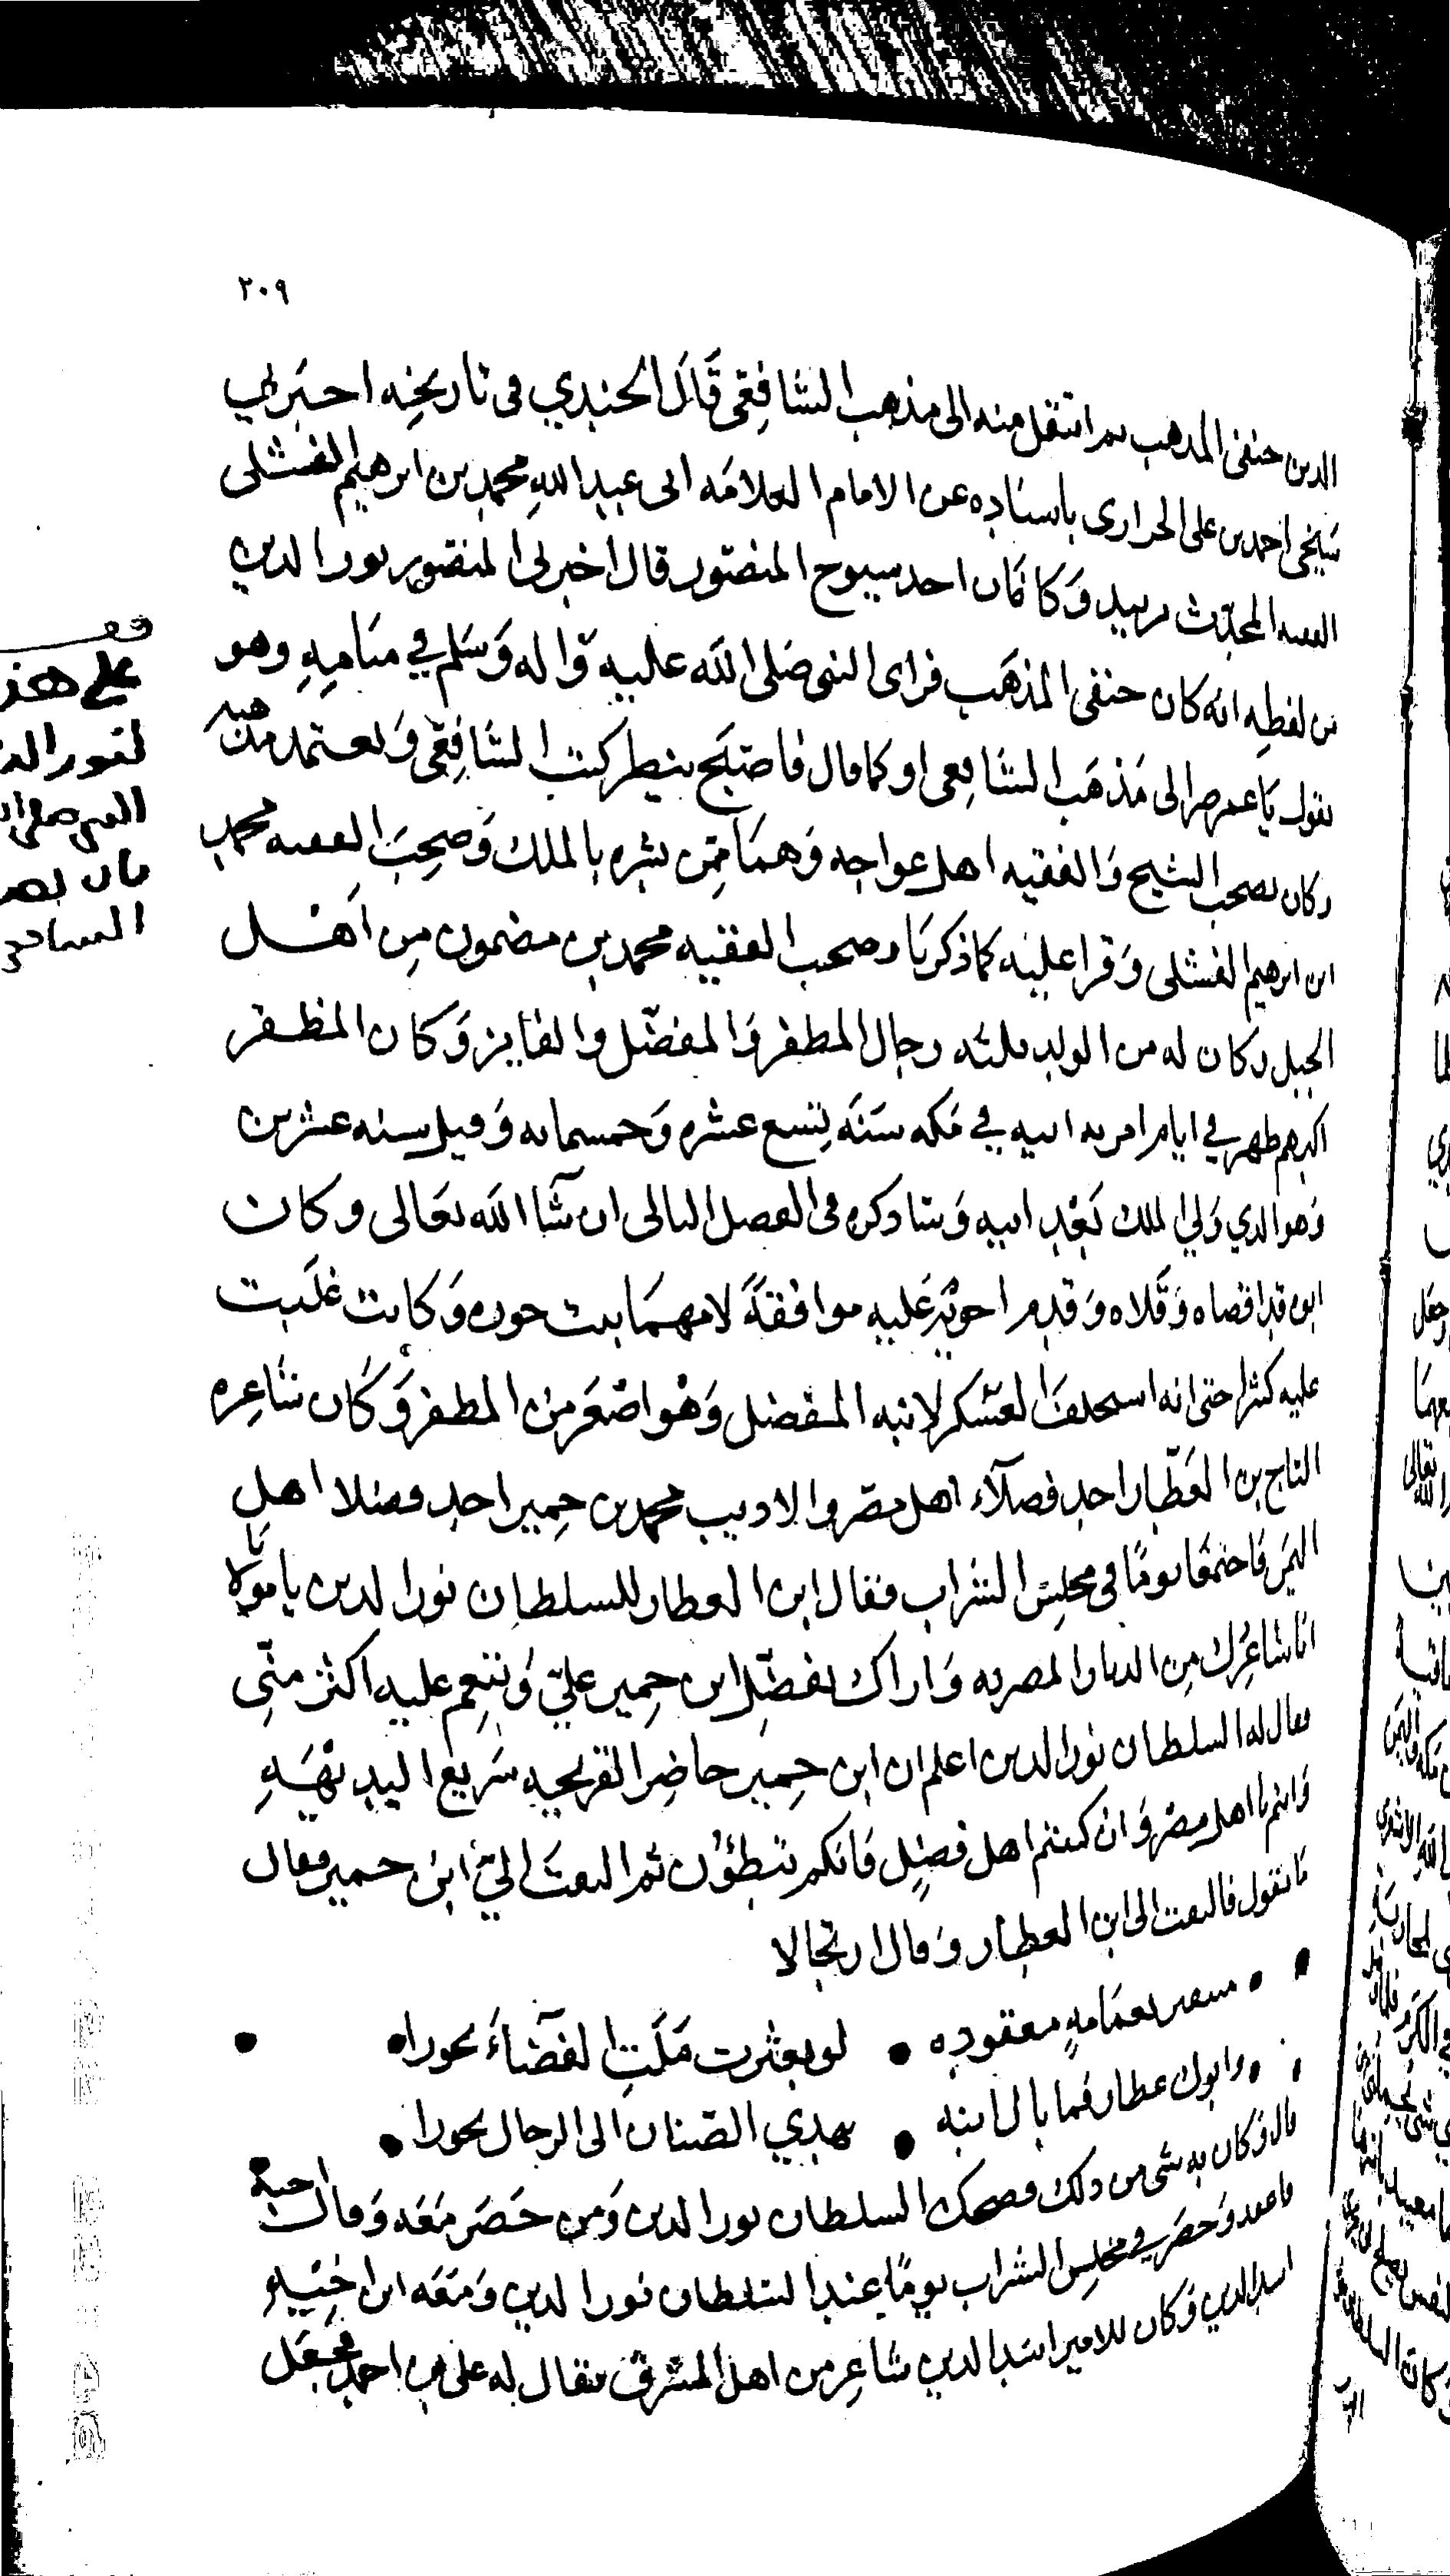 ٢٠٩
الدين حنفى المذهب ثم انتقل منه الى مذهب الشافعى قال الجندي فى تاريخه اخبرني
شيخي احمد بن على الحرازى باسناده عن الامام العلامه ابى عبد الله محمد بن ابرهيم الفشلى
الفقيه المحدث بزبيد وكان احد شيوخ المنصور قال اخبرنى المنصور نور الدين
من لفظه انه كان حنفى المذهب فراى النبى صلى الله عليه واله وسلم في منامه وهو
يقول يا عمر صر الى مذهب الشافعى او كما قال فاصبح ينظر كتب الشافعى ويعتمد مذهبه
وكان يصحب الشيخ والفقيه اهل عواجه وهما ممن بشره بالملك وصحب الفقيه محمد
ابن ابرهيم الفشلى وقرا عليه كما ذكرنا وصحب الفقيه محمد بن مضمون من اهل
الجبل وكان له من الولد ثلثه رجال المظفر والمفضل والفايز وكان المظفر
اكبرهم ظهر في ايام امريه ابيه في مكه سنه تسع عشره وخمسمايه وقيل سنه عشرين
وهو الذي ولي الملك بعد ابيه وساذكره فى الفصل التالى ان شآ الله تعالى وكان
ابوه قد اقصاه وقلاه وقدم اخويه عليه موافقة لامهما بنت حوزه وكانت غلبت
عليه كثيرا حتى انه استحلف العسكر لابنه المفضل وهو اصغر من المظفر وكان شاعره
التاج بن العطار احد فضلاء اهل مصر والاديب محمد بن حمير احد فضلا اهل
اليمن فاجتمعا يوما فى مجلس الشراب فقال ابن العطار للسلطان نور الدين يا مولانا
انا شاعرك من الديار المصريه واراك تفضل ابن حمير علي وتنعم عليه اكثر مني
فقال له السلطان نور الدين اعلم ان ابن حمير حاضر القريحه سريع البديهه
وانتم يا اهل مصر وان كنتم اهل فضل فانكم تبطؤن ثم التفت الي ابن حمير فقال
ما تقول فالتفت الى ابن العطار وقال ارتجالا
بعمامه معقوده • لو بعثرت ملت الفضاء بحورا •
وابوك عطار فما بال ابنه • يهدي الصنان الى الرجال بحورا •
قال وكان به شى من ذلك فضحك السلطان نور الدين ومن حضر معه وقال
وحضر في مجلس الشراب يوما عند السلطان نور الدين ومعه ابن اخيه
اسد الدين وكان للامير اسد الدين شاعر من اهل المشرق يقال له على بن احمد فجعل
على هذ
لنور الد